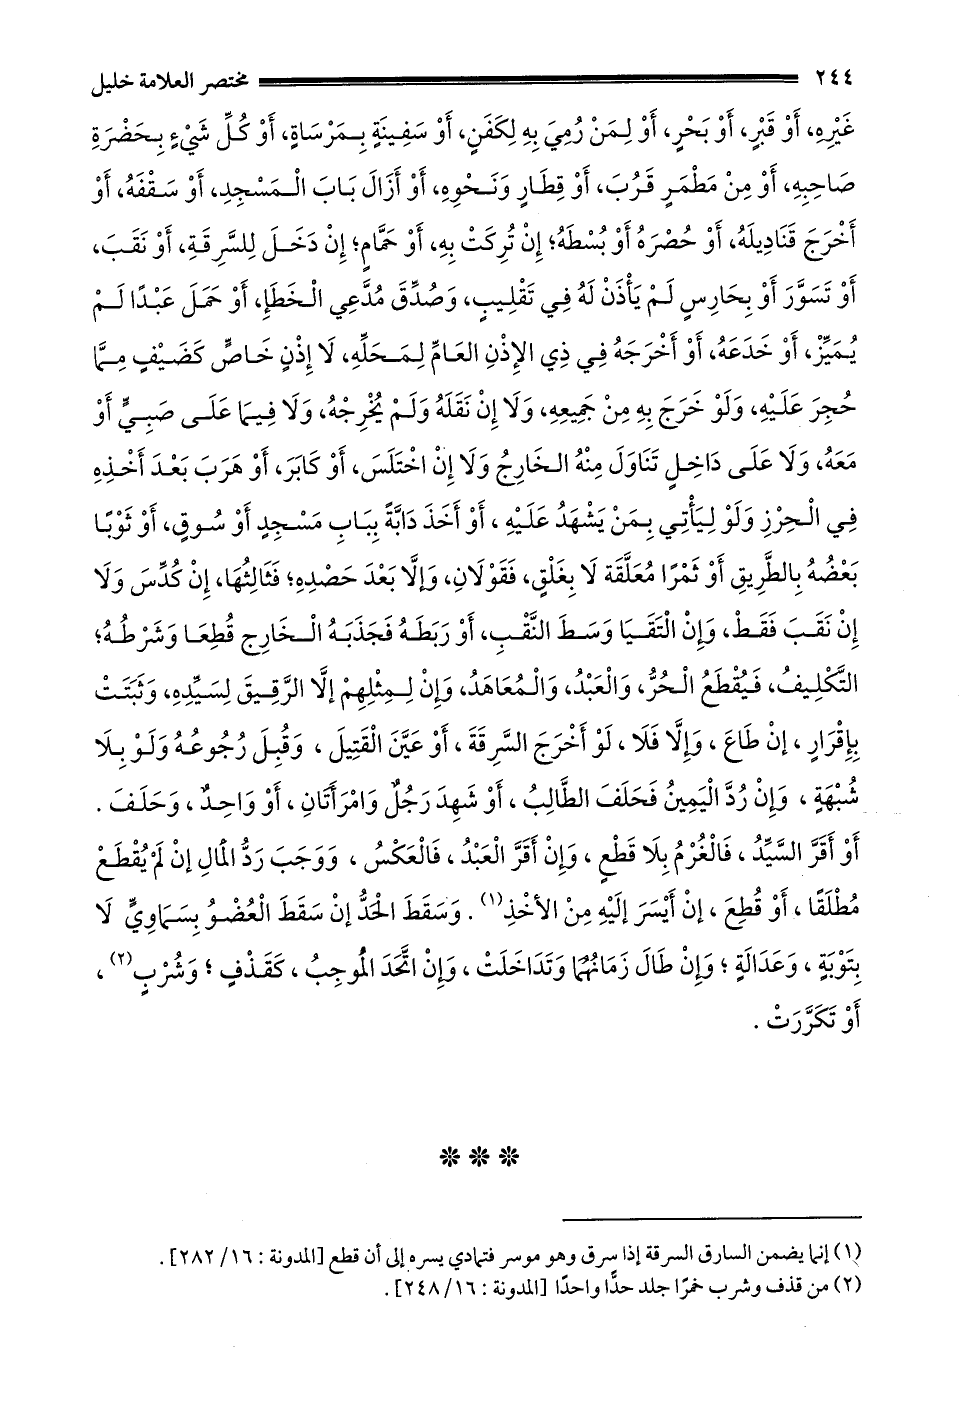 ٢٤٤ مختصر العلامة خليل
غَيْرِهِ، أَوْ قَبْرٍ، أَوْ بَحْرٍ، أَوْ لِمَنْ رُمِيَ بِهِ لِكَفَنٍ، أَوْ سَفِينَةٍ بِمَرْسَاةٍ، أَوْ كُلِّ شَيْءٍ بِحَضْرَةِ
صَاحِبِهِ، أَوْ مِنْ مَطْمَرٍ قَرُبَ، أَوْ قِطَارٍ وَنَحْوِهِ، أَوْ أَزَالَ بَابَ الْمَسْجِدِ، أَوْ سَقْفَهُ، أَوْ
أَخْرَجَ قَنَادِيلَهُ، أَوْ حُصْرَهُ أَوْ بُسْطَهُ؛ إِنْ تُرِكَتْ بِهِ، أَوْ حَمَّامٍ؛ إِنْ دَخَلَ لِلسَّرِقَةِ، أَوْ نَقَبَ،
أَوْ تَسَوَّرَ أَوْ بِحَارِسٍ لَمْ يَأْذَنْ لَهُ فِي تَقْلِيبٍ، وَصُدِّقَ مُدَّعِي الْخَطَإِ، أَوْ حَمَلَ عَبْدًا لَمْ
يُمَيِّزْ، أَوْ خَدَعَهُ، أَوْ أَخْرَجَهُ فِي ذِي الإِذْنِ العَامِّ لِمَحَلِّهِ، لَا إِذْنٍ خَاصٍّ كَضَيْفٍ مِمَّا
حُجِرَ عَلَيْهِ، وَلَوْ خَرَجَ بِهِ مِنْ جَمِيعِهِ، وَلَا إِنْ نَقَلَهُ وَلَمْ يُخْرِجْهُ، وَلَا فِيمَا عَلَى صَبِيٍّ أَوْ
مَعَهُ، وَلَا عَلَى دَاخِلٍ تَنَاوَلَ مِنْهُ الْخَارِجُ وَلَا إِنْ اخْتَلَسَ، أَوْ كَابَرَ، أَوْ هَرَبَ بَعْدَ أَخْذِهِ
فِي الْحِرْزِ وَلَوْ لِيَأْتِي بِمَنْ يَشْهَدُ عَلَيْهِ ، أَوْ أَخَذَ دَابَّةً بِبَابِ مَسْجِدٍ أَوْ سُوقٍ، أَوْ ثَوْبًا
بَعْضُهُ بِالطَّرِيقِ أَوْ ثَمْرًا مُعَلَّقَة لَا بِغَلْقٍ، فَقَوْلَانِ، وَإِلَّا بَعْدَ حَصْدِهِ؛ فَثَالِثُهَا، إِنْ كُدِّسَ وَلَا
إِنْ نَقَبَ فَقَطْ، وَإِنْ الْتَقَيَا وَسَطَ النَّقْبِ، أَوْ رَبَطَهُ فَجَذَبَهُ الْخَارِج قُطِعَا وَشَرْطُهُ؛
التَّكْلِيفُ، فَيُقْطَعُ الْحُرُّ، وَالْعَبْدُ، وَالْمُعَاهَدُ، وَإِنْ لِمِثْلِهِمْ إِلَّا الرَّقِيقَ لِسَيِّدِهِ، وَثَبَتَتْ
بِإِقْرَارٍ ، إِنْ طَاعَ ، وَإِلَّا فَلَا ، لَوْ أَخْرَجَ السَّرِقَةَ ، أَوْ عَيَّنَ الْقَتِيلَ ، وَقُبِلَ رُجُوعُهُ وَلَوْ بِلَا
شُبْهَةٍ ، وَإِنْ رُدَّ الْيَمِينُ فَحَلَفَ الطَّالِبُ ، أَوْ شَهِدَ رَجُلٌ وَامْرَأَتَانِ ، أَوْ وَاحِدٌ ، وَحَلَفَ .
أَوْ أَقَرَّ السَّيِّدُ ، فَالْغُرْمُ بِلَا قَطْعٍ ، وَإِنْ أَقَرَّ الْعَبْدُ ، فَالْعَكْسُ ، وَوَجَبَ رَدُّ المَالِ إِنْ لَمْ يُقْطَعْ
مُطْلَقًا ، أَوْ قُطِعَ ، إِنْ أَيْسَرَ إِلَيْهِ مِنْ الأَخْذِ(١) . وَسَقَطَ الحَدُّ إِنْ سَقَطَ الْعُضْوُ بِسَمَاوِيٍّ لَا
بِتَوْبَةٍ ، وَعَدَالَةٍ ؛ وَإِنْ طَالَ زَمَانُهُمَا وَتَدَاخَلَتْ ، وَإِنْ اتَّحَدَ المُوجِبُ ، كَقَذْفٍ ؛ وَشُرْبٍ(٢) ،
أَوْ تَكَرَّرَتْ .
(١) إنما يضمن السارق السرقة إذا سرق وهو موسر فتمادي يسره إلى أن قطع [المدونة : ١٦/ ٢٨٢] .
(٢) من قذف وشرب خمرًا جلد حدًّا واحدًا [المدونة : ١٦/ ٢٤٨] .